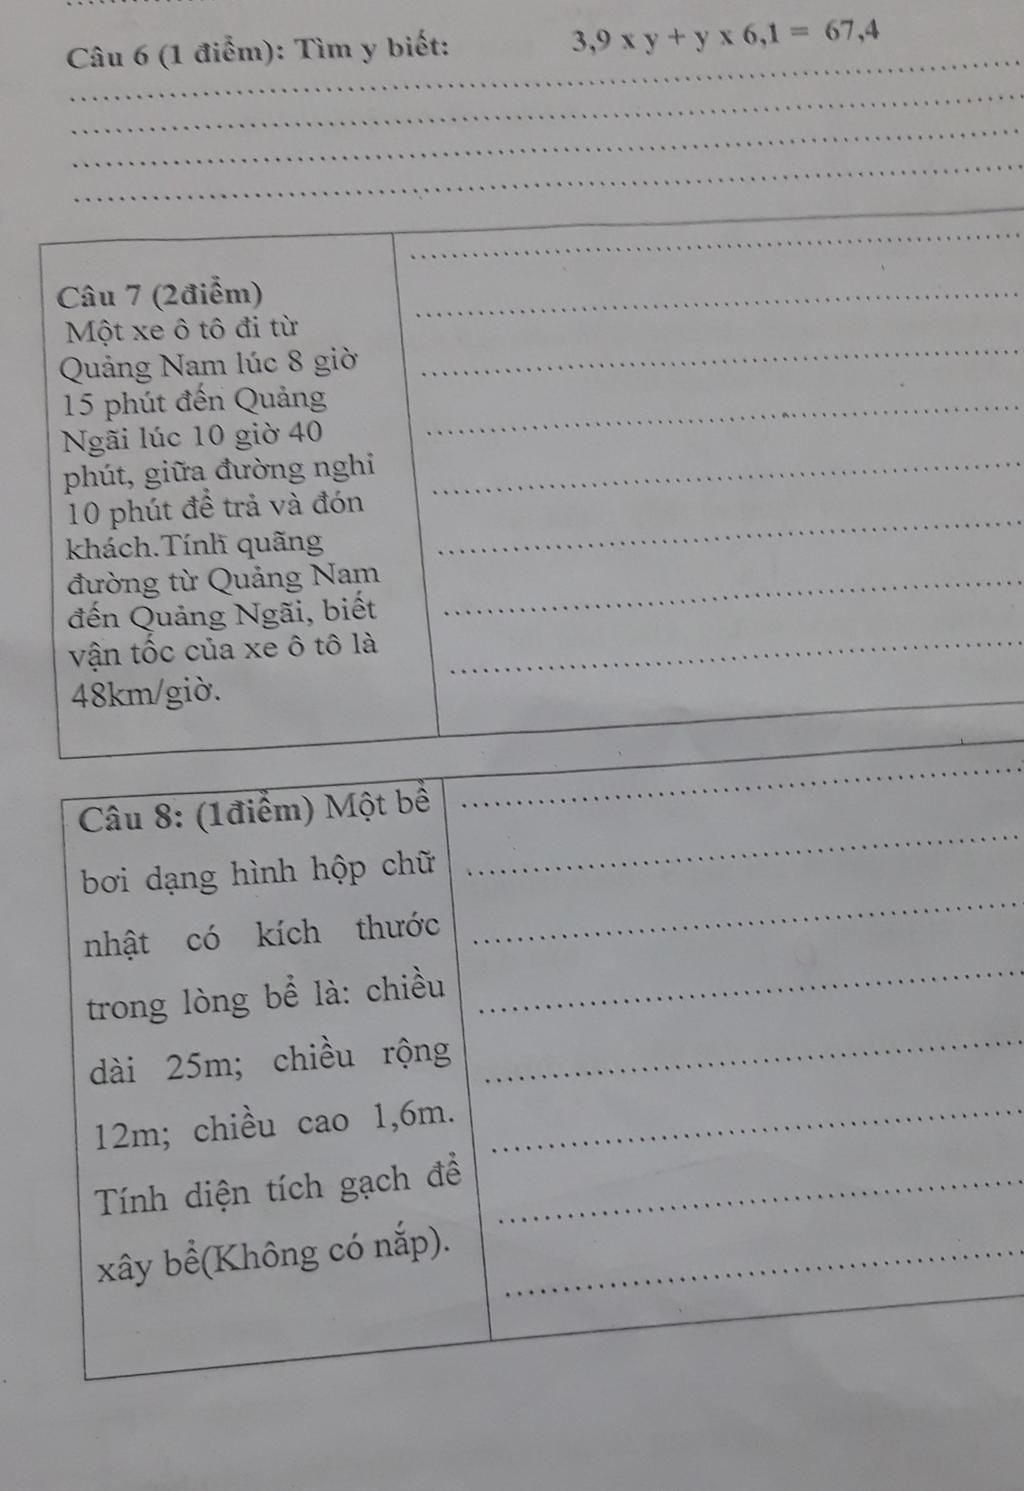 Câu 6 (1 điểm): Tìm y biết: 3,9 x y + y x 6,1 = 67,4
Câu 7 (2điểm)
Một xe ô tô đi từ
Quảng Nam lúc 8 giờ
15 phút đến Quảng
Ngãi lúc 10 giờ 40
phút, giữa đường nghỉ
10 phút để trả và đón
khách.Tính quãng
đường từ Quảng Nam
đến Quảng Ngãi, biết
vận tốc của xe ô tô là
48km/giờ.
Câu 8: (1điểm) Một bể
bơi dạng hình hộp chữ
nhật có kích thước
trong lòng bể là: chiều
dài 25m; chiều rộng
12m; chiều cao 1,6m.
Tính diện tích gạch để
xây bể(Không có nắp).